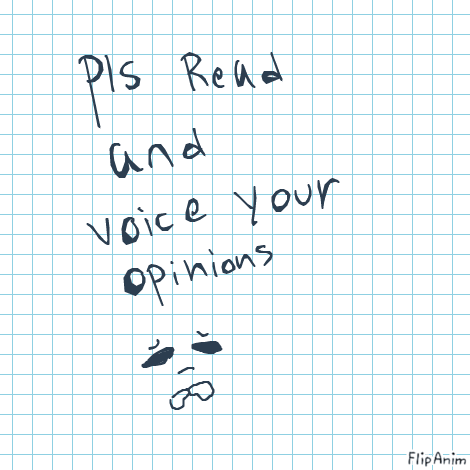 Pls Read
and
voice your
opinions
FlipAnim